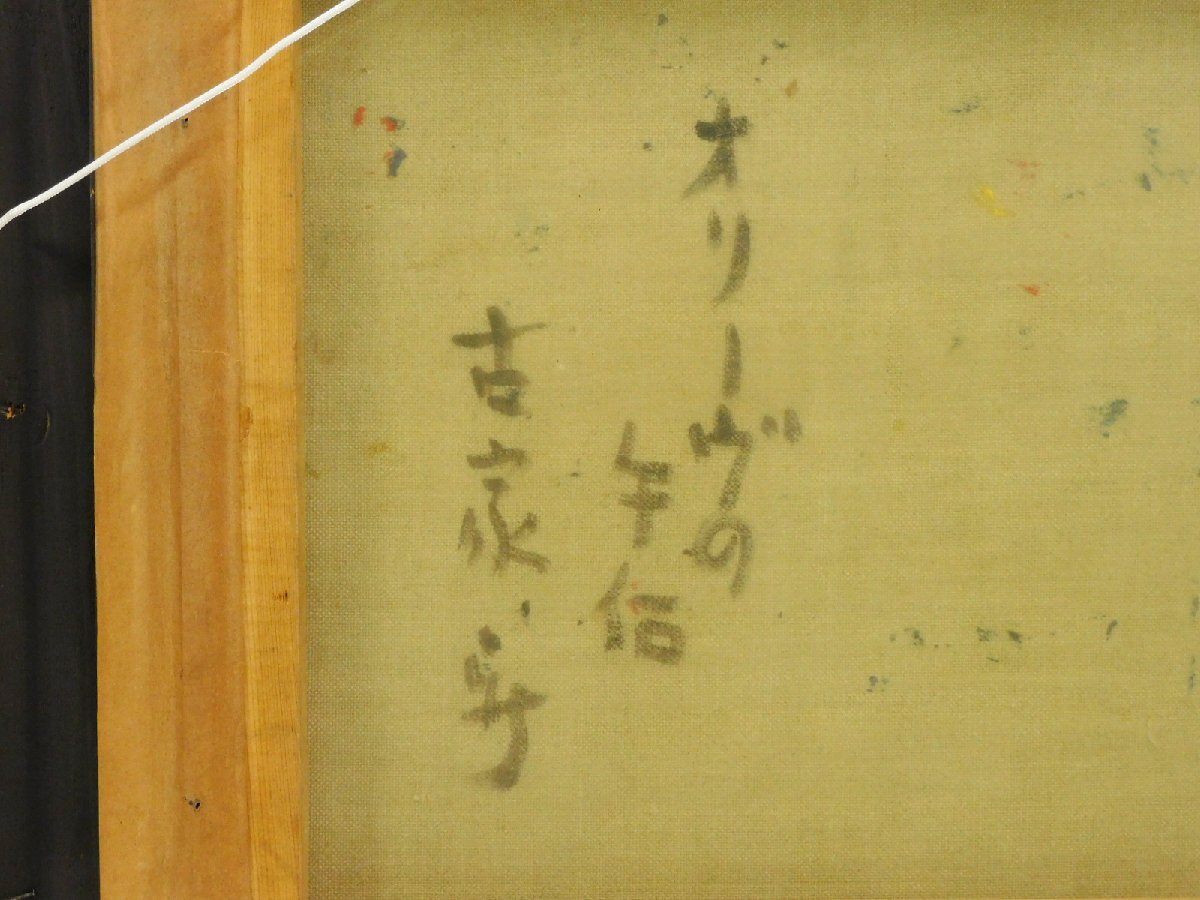 オリーヴの
午后
古家 新